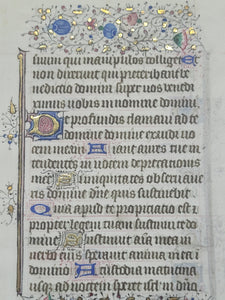 suum qui manipulos colliget Et
non dixerunt qui preteribant be
nedictio domini super vos benedi
ximus vobis in nomine domini
De profundis clamavi ad te
domine domine exaudi vo
cem meam Fiant aures tue in
tendentes in vocem deprecationis
mee Si iniquitates observave
ris domine domine quis sustinebit
Quia apud te propiciatio est et
propter legem tuam sustinui te do
mine Sustinuit anima mea in ver
bo eius speravit anima mea in
domino A custodia matutina
usque ad noctem speret israel in dno